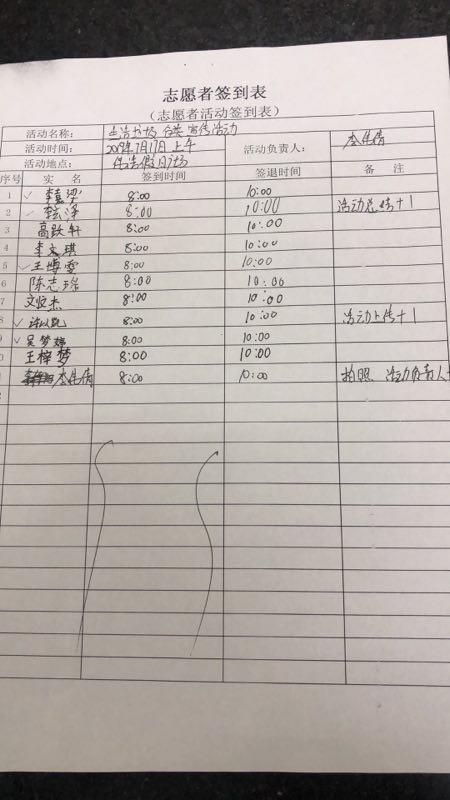 志愿者签到表
（志愿者活动签到表）
活动名称： 生活垃圾分类宣传活动
活动时间： 2019年7月17日上午 活动负责人： 李伟倩
活动地点： 假日广场
序号 实 名 签到时间 签退时间 备 注
1 ✓ 李 梁 8:00 10:00
2 ✓ 李 净 8:00 10:00 活动总结+1
3 高跃轩 8:00 10:00
4 李文琪 8:00 10:00
5 ✓ 王博雯 8:00 10:00
6 陈志瑶 8:00 10:00
7 文俊杰 8:00 10:00
8 ✓ 许 凯 8:00 10:00 活动上传+1
9 ✓ 吴梦婷 8:00 10:00
0 王梓梦 8:00 10:00
1 李伟倩 8:00 10:00 拍照 活动负责人
2